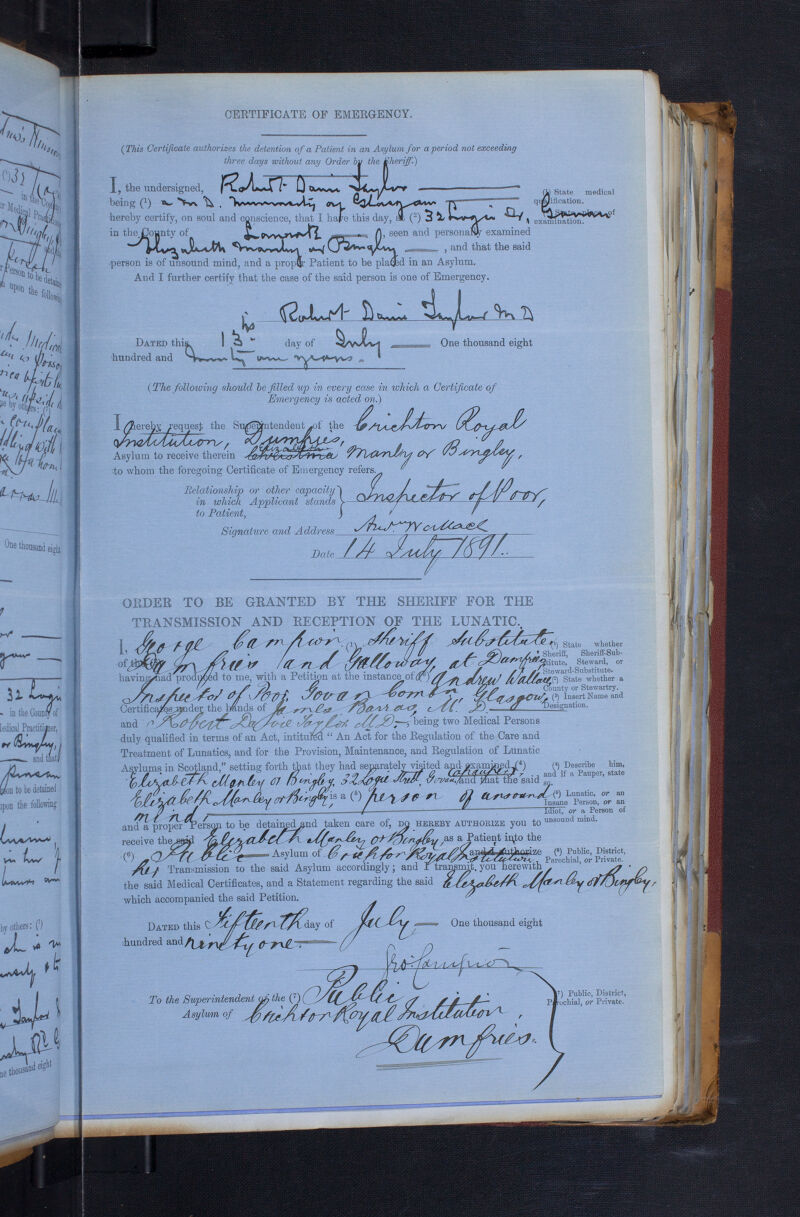 CERTIFICATE OF EMERGENCY.
(This Certificate authorizes the detention of a Patient in an Asylum for a period not exceeding
three days without any Order by the Sheriff.)
I, the undersigned, Robert Davie Taylor
being (1) a M D. University of Glasgow
(1) State medical
qualification.
hereby certify, on soul and conscience, that I have this day, at (2) 32 Logie St, Govan
of
examination.
in the County of Lanark seen and personally examined
Elizabeth Manley or Bingley, and that the said
person is of unsound mind, and a proper Patient to be placed in an Asylum.
And I further certify that the case of the said person is one of Emergency.
Robert Davie Taylor M D
DATED this 13th day of July One thousand eight
hundred and ninety one years.
(The following should be filled up in every case in which a Certificate of
Emergency is acted on.)
I hereby request the Superintendent of the Crichton Royal
Institution, Dumfries,
Elizabeth
Asylum to receive therein Christina Manley or Bingley,
to whom the foregoing Certificate of Emergency refers.
Relationship or other capacity
in which Applicant stands
to Patient,
Inspector of Poor,
Signature and Address Andw Wallace
Date 14 July 1891.
ORDER TO BE GRANTED BY THE SHERIFF FOR THE
TRANSMISSION AND RECEPTION OF THE LUNATIC.
I, George Campion (1) Sheriff Substitute,
of Dumfries and Galloway, at Dumfries
(1) State whether
Sheriff, Sheriff-Sub-
stitute, Steward, or
Steward-Substitute.
having had produced to me, with a Petition at the instance of (3) Andrew Wallace
(2) State whether a
County or Stewartry.
Inspector of Poor, Govan Combn Glasgow,
(3) Insert Name and
Designation.
Certificates under the hands of James Barras, M. D
and Robert Davie Taylor M.D., being two Medical Persons
duly qualified in terms of an Act, intituled "An Act for the Regulation of the Care and
Treatment of Lunatics, and for the Provision, Maintenance, and Regulation of Lunatic
Asylums in Scotland," setting forth that they had separately visited and examined (4)
Elizabeth Manley or Bingley, 32 Logie Street, Govan, and that the said
(4) Describe him,
and if a Pauper, state
so.
Elizabeth Manley or Bingley, is a (5) person of unsound
mind,
(5) Lunatic, or an
Insane Person, or an
Idiot, or a Person of
unsound mind.
and a proper Person to be detained and taken care of, DO HEREBY AUTHORIZE you to
receive the said Elizabeth Manley or Bingley as a Patient into the
(6) Public Asylum of Crichton Royal Institution and Authorize
(6) Public, District,
Parochial, or Private.
her Transmission to the said Asylum accordingly; and I transmit you herewith
the said Medical Certificates, and a Statement regarding the said Elizabeth Manley or Bingley,
which accompanied the said Petition.
DATED this Fifteenth day of July One thousand eight
hundred and ninety one.
Geo. Campion
To the Superintendent of the (7) Public
Asylum of Crichton Royal Institution,
Dumfries.
(7) Public, District,
Parochial, or Private.
One thousand eight
in the County of
Medical Practitioner,
or Bingley,
and that
to be detained
upon the following
by others: (7)
one thousand eight